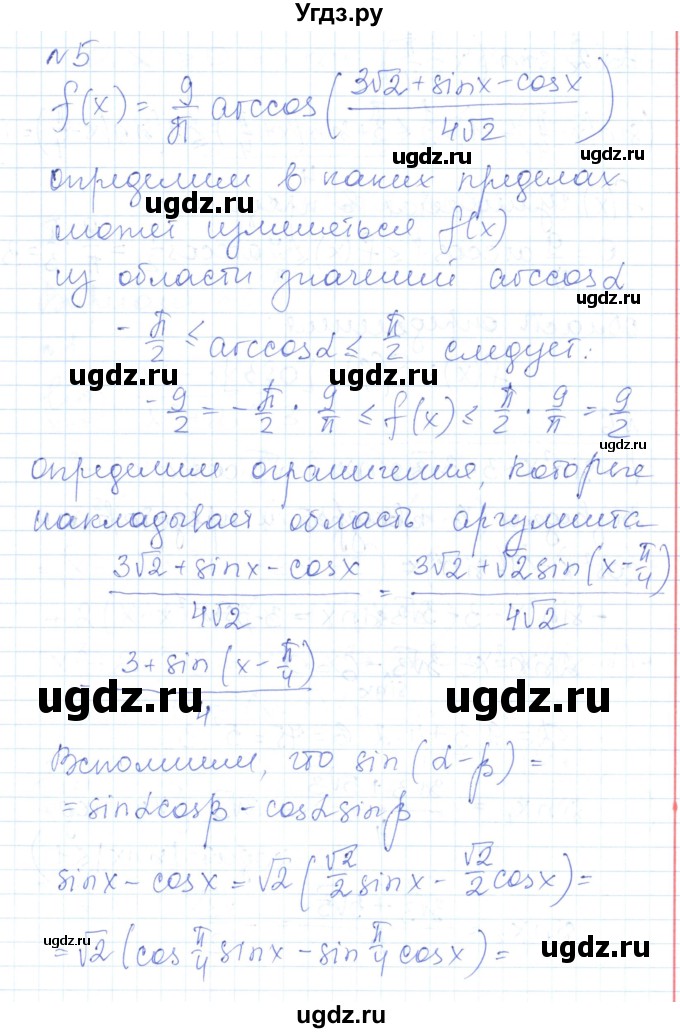 Угдз.ру
№5
f(x) = 9/π arccos((3√2 + sinx - cosx)/(4√2))
ugdz.ru
ugdz.ru
определим в каких пределах
ugdz.ru
может изменяться f(x)
из области значений arccosα
ugdz.ru
-π/2 ≤ arccosα ≤ π/2 следует:
ugdz.ru
ugdz.ru
-9/2 = -π/2 · 9/π ≤ f(x) ≤ π/2 · 9/π = 9/2
ugdz.ru
определим ограничения, которые
накладывает область аргумента
(3√2 + sinx - cosx)/(4√2) = (3√2 + √2 sin(x - π/4))/(4√2)
= (3 + sin(x - π/4))/4
ugdz.ru
ugdz.ru
Вспомним, что sin(α - β) =
= sinαcosβ - cosαsinβ
sinx - cosx = √2(√2/2 sinx - √2/2 cosx) =
= √2(cos π/4 sinx - sin π/4 cosx) =
ugdz.ru
ugdz.ru
ugdz.ru